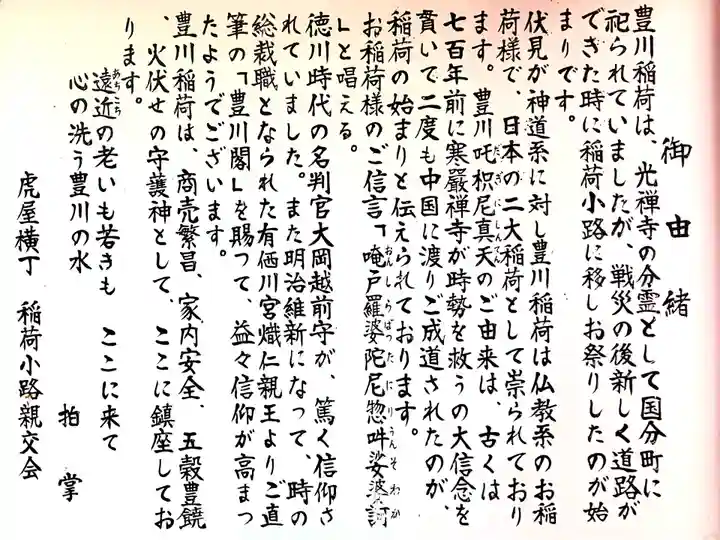 御由緒
豊川稲荷は、光禅寺の分霊として国分町に
祀られていましたが、戦災の後新しく道路が
できた時に稲荷小路に移しお祭りしたのが始
まりです。
伏見が神道系に対し豊川稲荷は仏教系のお稲
荷様で、日本の二大稲荷として崇られており
ます。豊川吒枳尼真天のご由来は、古くは
だきにしんてん
七百年前に寒巌禅寺が時勢を救うの大信念を
貫いて二度も中国に渡りご成道されたのが、
稲荷の始まりと伝えられております。
お稲荷様のご信言「唵尸羅婆陀尼惣吽娑婆訶
おんしらばったにりうんそわか
」と唱える。
徳川時代の名判官大岡越前守が、篤く信仰さ
れていました。また明治維新になって、時の
総裁職となられた有栖川宮熾仁親王よりご直
筆の「豊川閣」を賜って、益々信仰が高まっ
たようでございます。
豊川稲荷は、商売繁昌、家内安全、五穀豊饒
、火伏せの守護神として、ここに鎮座してお
ります。
遠近の老いも若きも ここに来て
あちこち
心の洗う豊川の水
拍掌
虎屋横丁 稲荷小路親交会